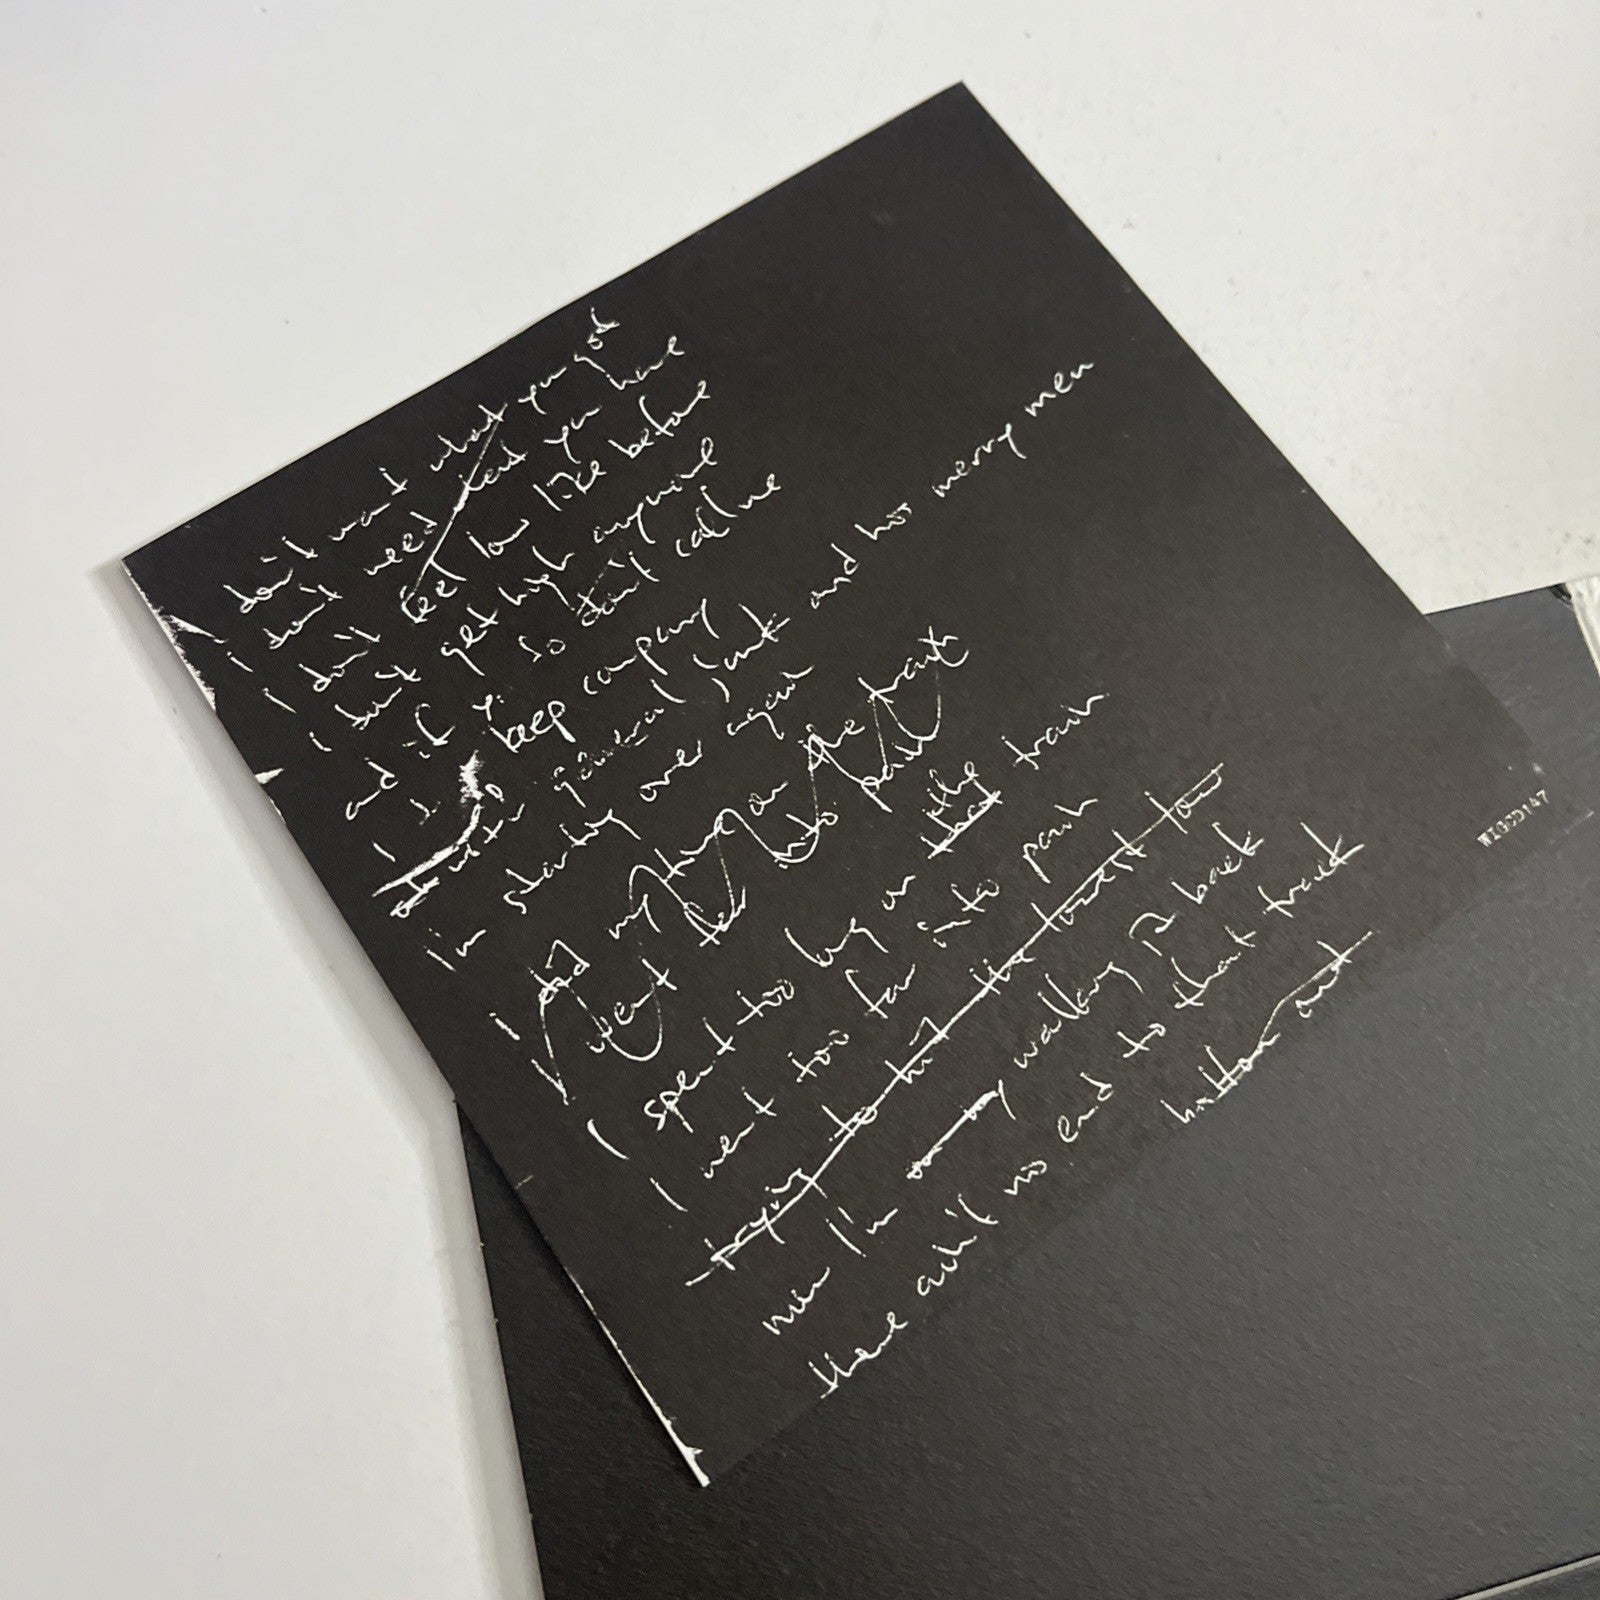 don't want what you got
i don't need what you have
i don't feel low like before
i don't get high anymore
and if i so don't call me
i keep company
with general Santé and his merry men
I'm starting over again
i my time on the train
went far into pain
I spent too long on the that train
I went too far into pain
trying to hit the lowest low
now I'm on my walking back
there ain't no end to that track
bottom out
WIGCD147